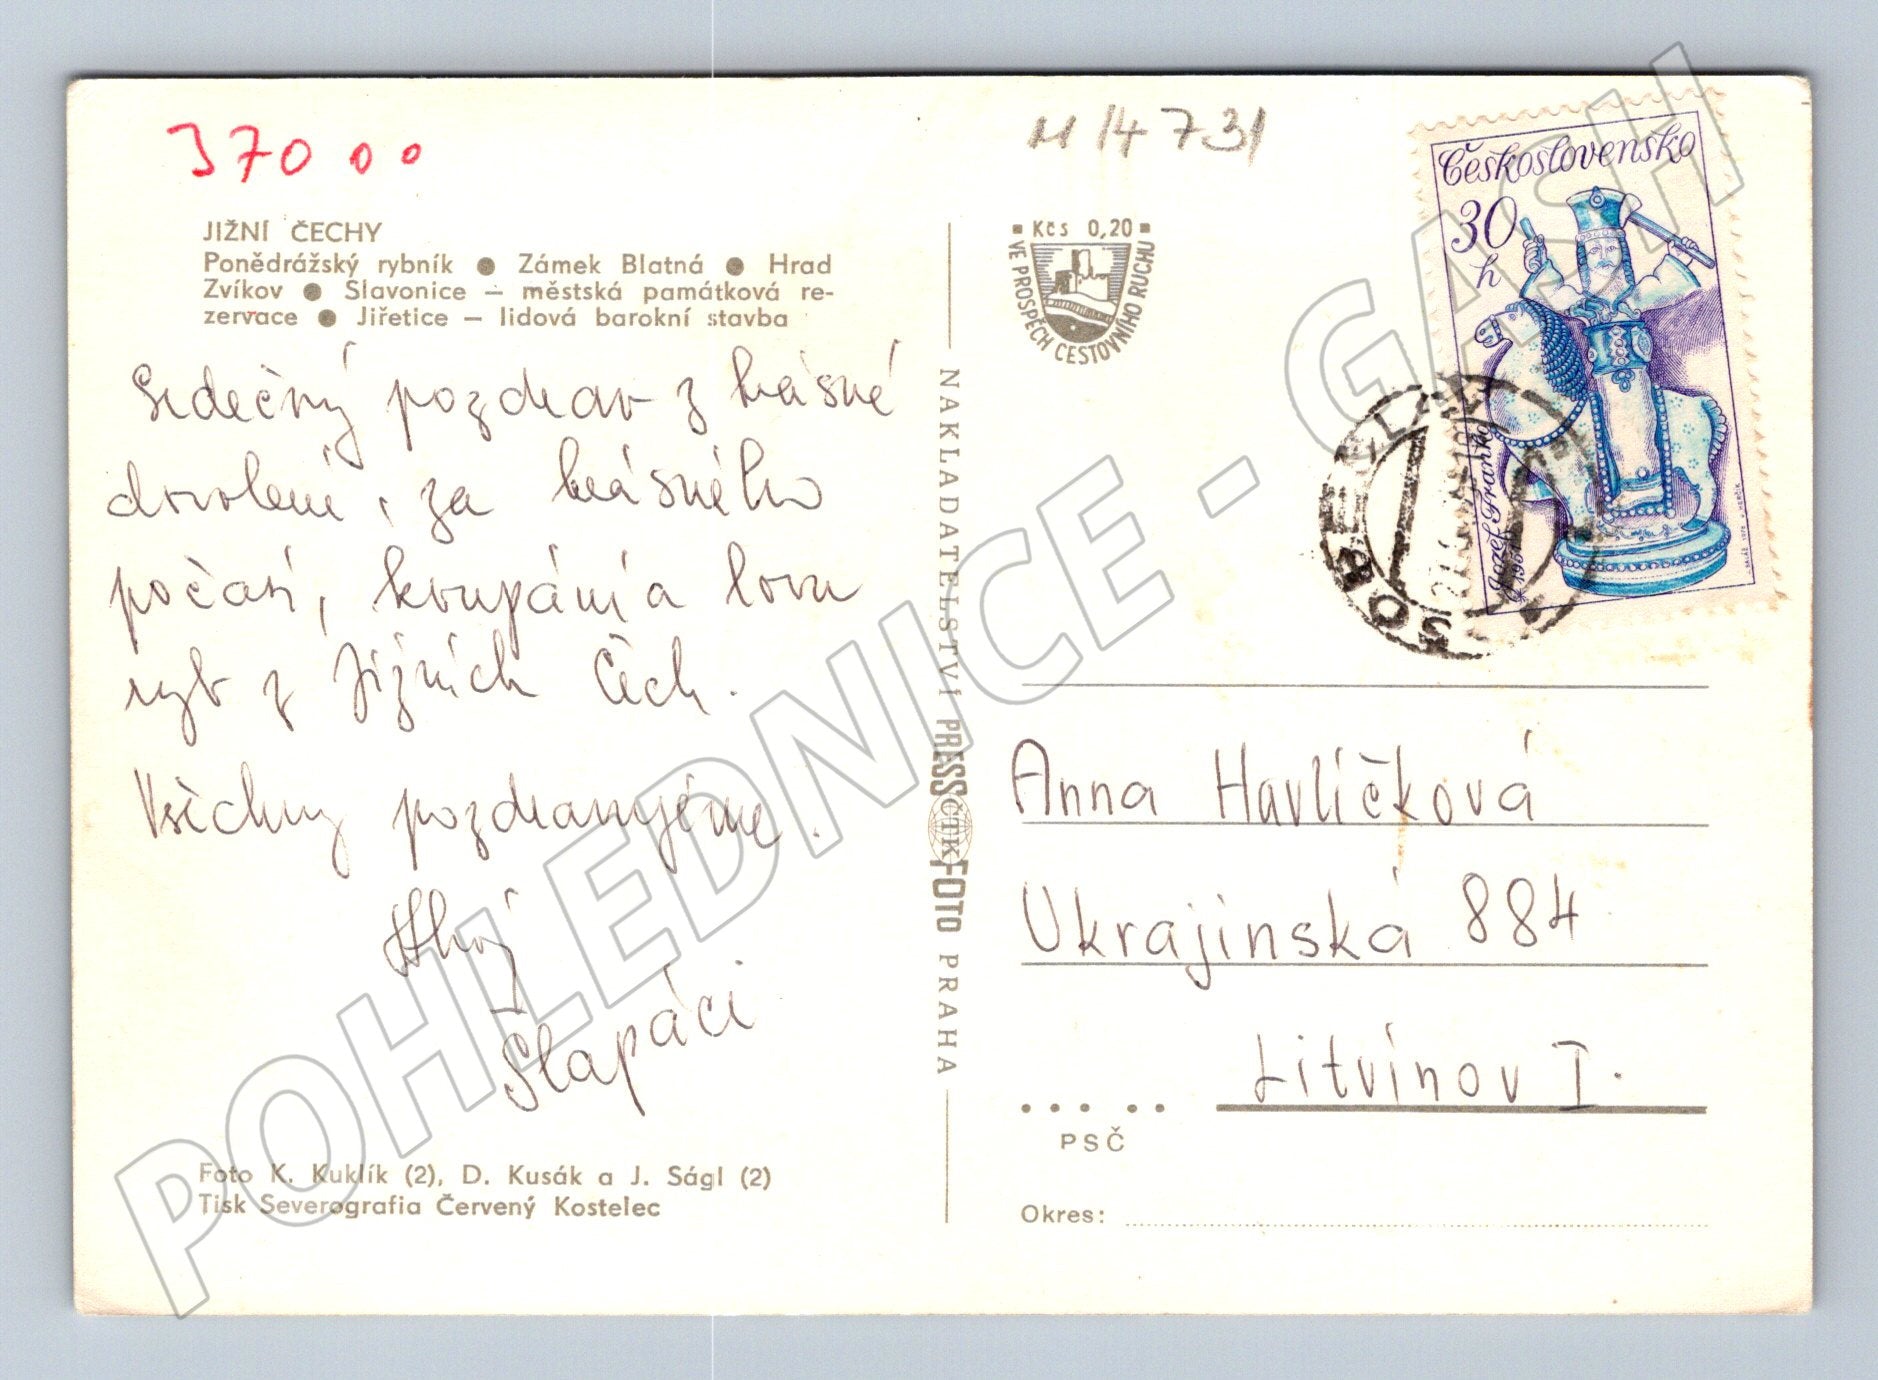 37000
M 14 731
JIŽNÍ ČECHY
Ponědrážský rybník ● Zámek Blatná ● Hrad
Zvíkov ● Slavonice – městská památková re-
zervace ● Jiřetice – lidová barokní stavba
Srdečný pozdrav z krásné
dovolené, za krásného
počasí, koupání a lovu
ryb z Jižních Čech.
Všichny pozdravujeme.
Ahoj
Šlapáci
Foto K. Kuklík (2), D. Kusák a J. Ságl (2)
Tisk Severografia Červený Kostelec
NAKLADATELSTVÍ PRESSFOTO PRAHA
ČTK
Kčs 0,20
VE PROSPĚCH CESTOVNÍHO RUCHU
Československo
30 h
Josef Franko
1961
SOBĚSLAV
Anna Havlíčková
Ukrajinská 884
Litvínov I.
PSČ
Okres:
POHLEDNICE - GASH